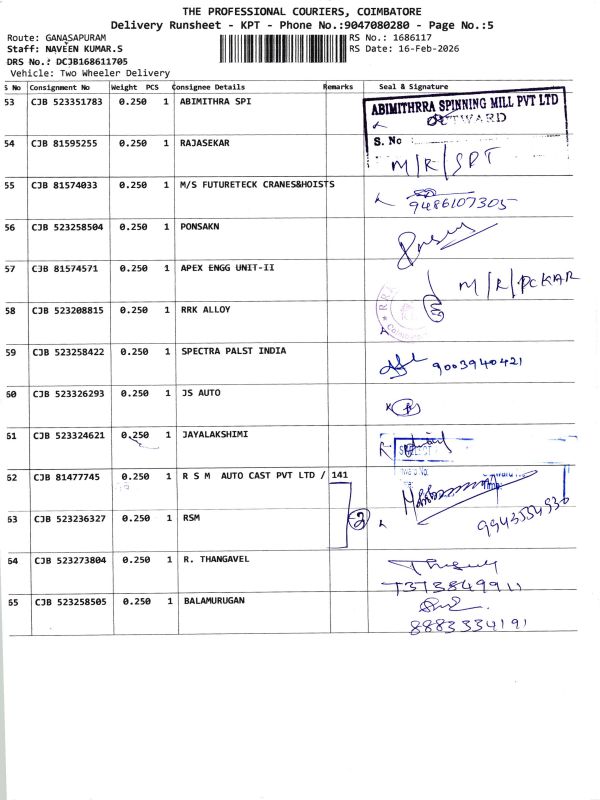 THE PROFESSIONAL COURIERS, COIMBATORE
Delivery Runsheet - KPT - Phone No.:9047080280 - Page No.:5
Route: GANASAPURAM
RS No.: 1686117
Staff: NAVEEN KUMAR.S
RS Date: 16-Feb-2026
DRS No.: DCJB168611705
Vehicle: Two Wheeler Delivery
S No Consignment No Weight PCS Consignee Details Remarks Seal & Signature
53 CJB 523351783 0.250 1 ABIMITHRA SPI
ABIMITHRRA SPINNING MILL PVT LTD
OUTWARD
S. No :
54 CJB 81595255 0.250 1 RAJASEKAR
M/R/SPT
55 CJB 81574033 0.250 1 M/S FUTURETECK CRANES&HOISTS
9486107305
56 CJB 523258504 0.250 1 PONSAKN
57 CJB 81574571 0.250 1 APEX ENGG UNIT-II
M/R/PCKAR
58 CJB 523208815 0.250 1 RRK ALLOY
59 CJB 523258422 0.250 1 SPECTRA PALST INDIA
9003940421
60 CJB 523326293 0.250 1 JS AUTO
61 CJB 523324621 0.250 1 JAYALAKSHIMI
62 CJB 81477745 0.250 1 R S M AUTO CAST PVT LTD / 141
63 CJB 523236327 0.250 1 RSM
2
9943534930
64 CJB 523273804 0.250 1 R. THANGAVEL
7373849911
65 CJB 523258505 0.250 1 BALAMURUGAN
8883334191